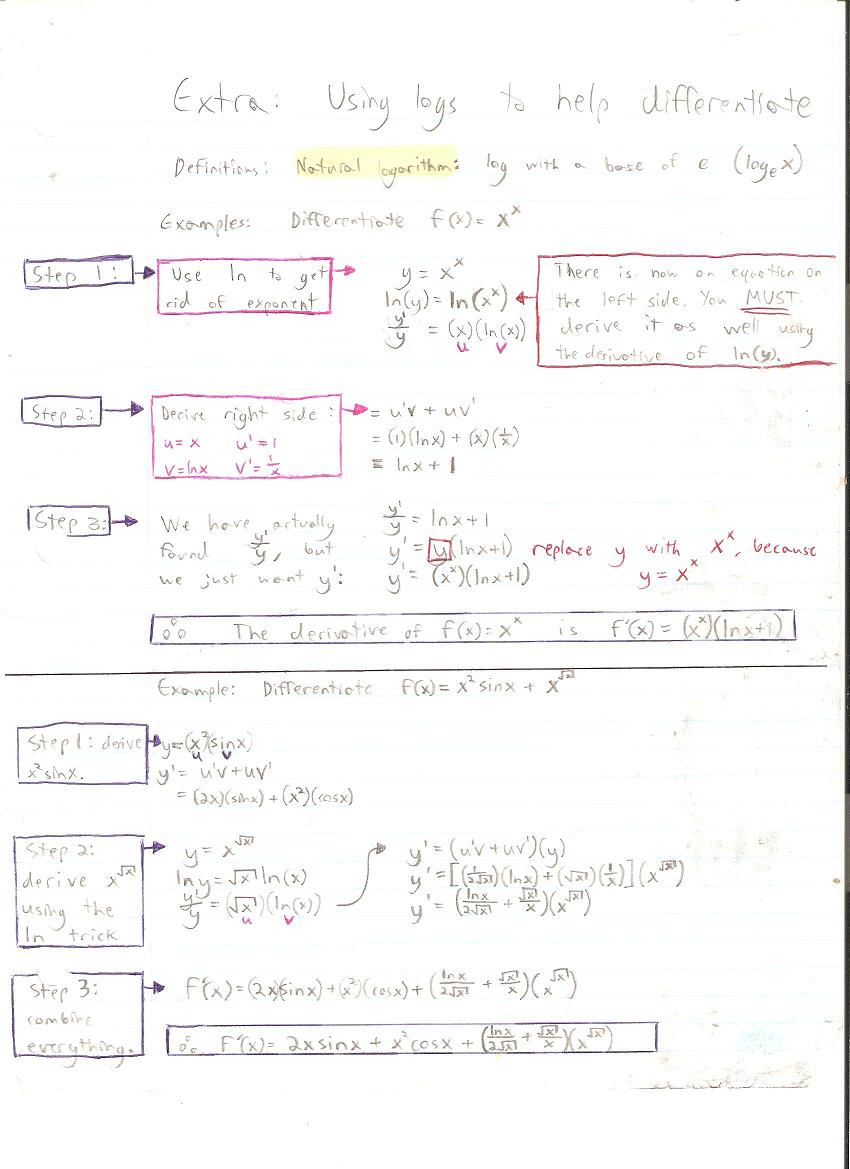 Extra: Using logs to help differentiate
Definitions: Natural logarithm: log with a base of e (logₑx)
Examples: Differentiate f(x) = x^x
Step 1:
Use ln to get
rid of exponent
y = x^x
ln(y) = ln(x^x)
y'/y = (x)(ln(x))
u v
There is now an equation on
the left side. You MUST
derive it as well using
the derivative of ln(y).
Step 2:
Derive right side:
u = x u' = 1
v = lnx v' = 1/x
= u'v + uv'
= (1)(lnx) + (x)(1/x)
= lnx + 1
Step 3:
We have actually
found y'/y, but
we just want y':
y'/y = lnx + 1
y' = y(lnx+1)
y' = (x^x)(lnx+1)
replace y with x^x, because
y = x^x
∴ The derivative of f(x) = x^x is f'(x) = (x^x)(lnx+1)
Example: Differentiate f(x) = x² sinx + x^√x
Step 1: derive
x² sinx.
y = (x²)(sinx)
u v
y' = u'v + uv'
= (2x)(sinx) + (x²)(cosx)
Step 2:
derive x^√x
using the
ln trick
y = x^√x
ln y = √x ln(x)
y'/y = (√x)(ln(x))
u v
y' = (u'v + uv')(y)
y' = [(1/2√x)(lnx) + (√x)(1/x)](x^√x)
y' = (lnx/2√x + √x/x)(x^√x)
Step 3:
combine
everything.
F'(x) = (2x)(sinx) + (x²)(cosx) + (lnx/2√x + √x/x)(x^√x)
∴ F'(x) = 2x sinx + x² cosx + (lnx/2√x + √x/x)(x^√x)